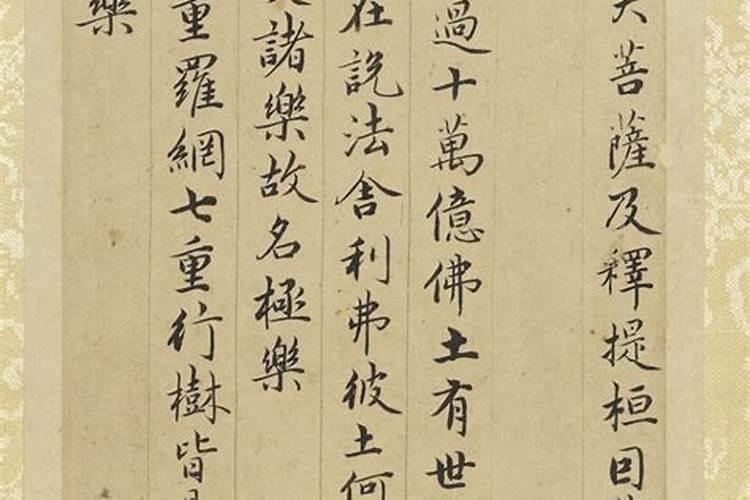 大菩薩及釋提桓因
過十萬億佛土有世
在說法舍利弗彼土何
諸樂故名極樂
重羅網七重行樹皆是
樂